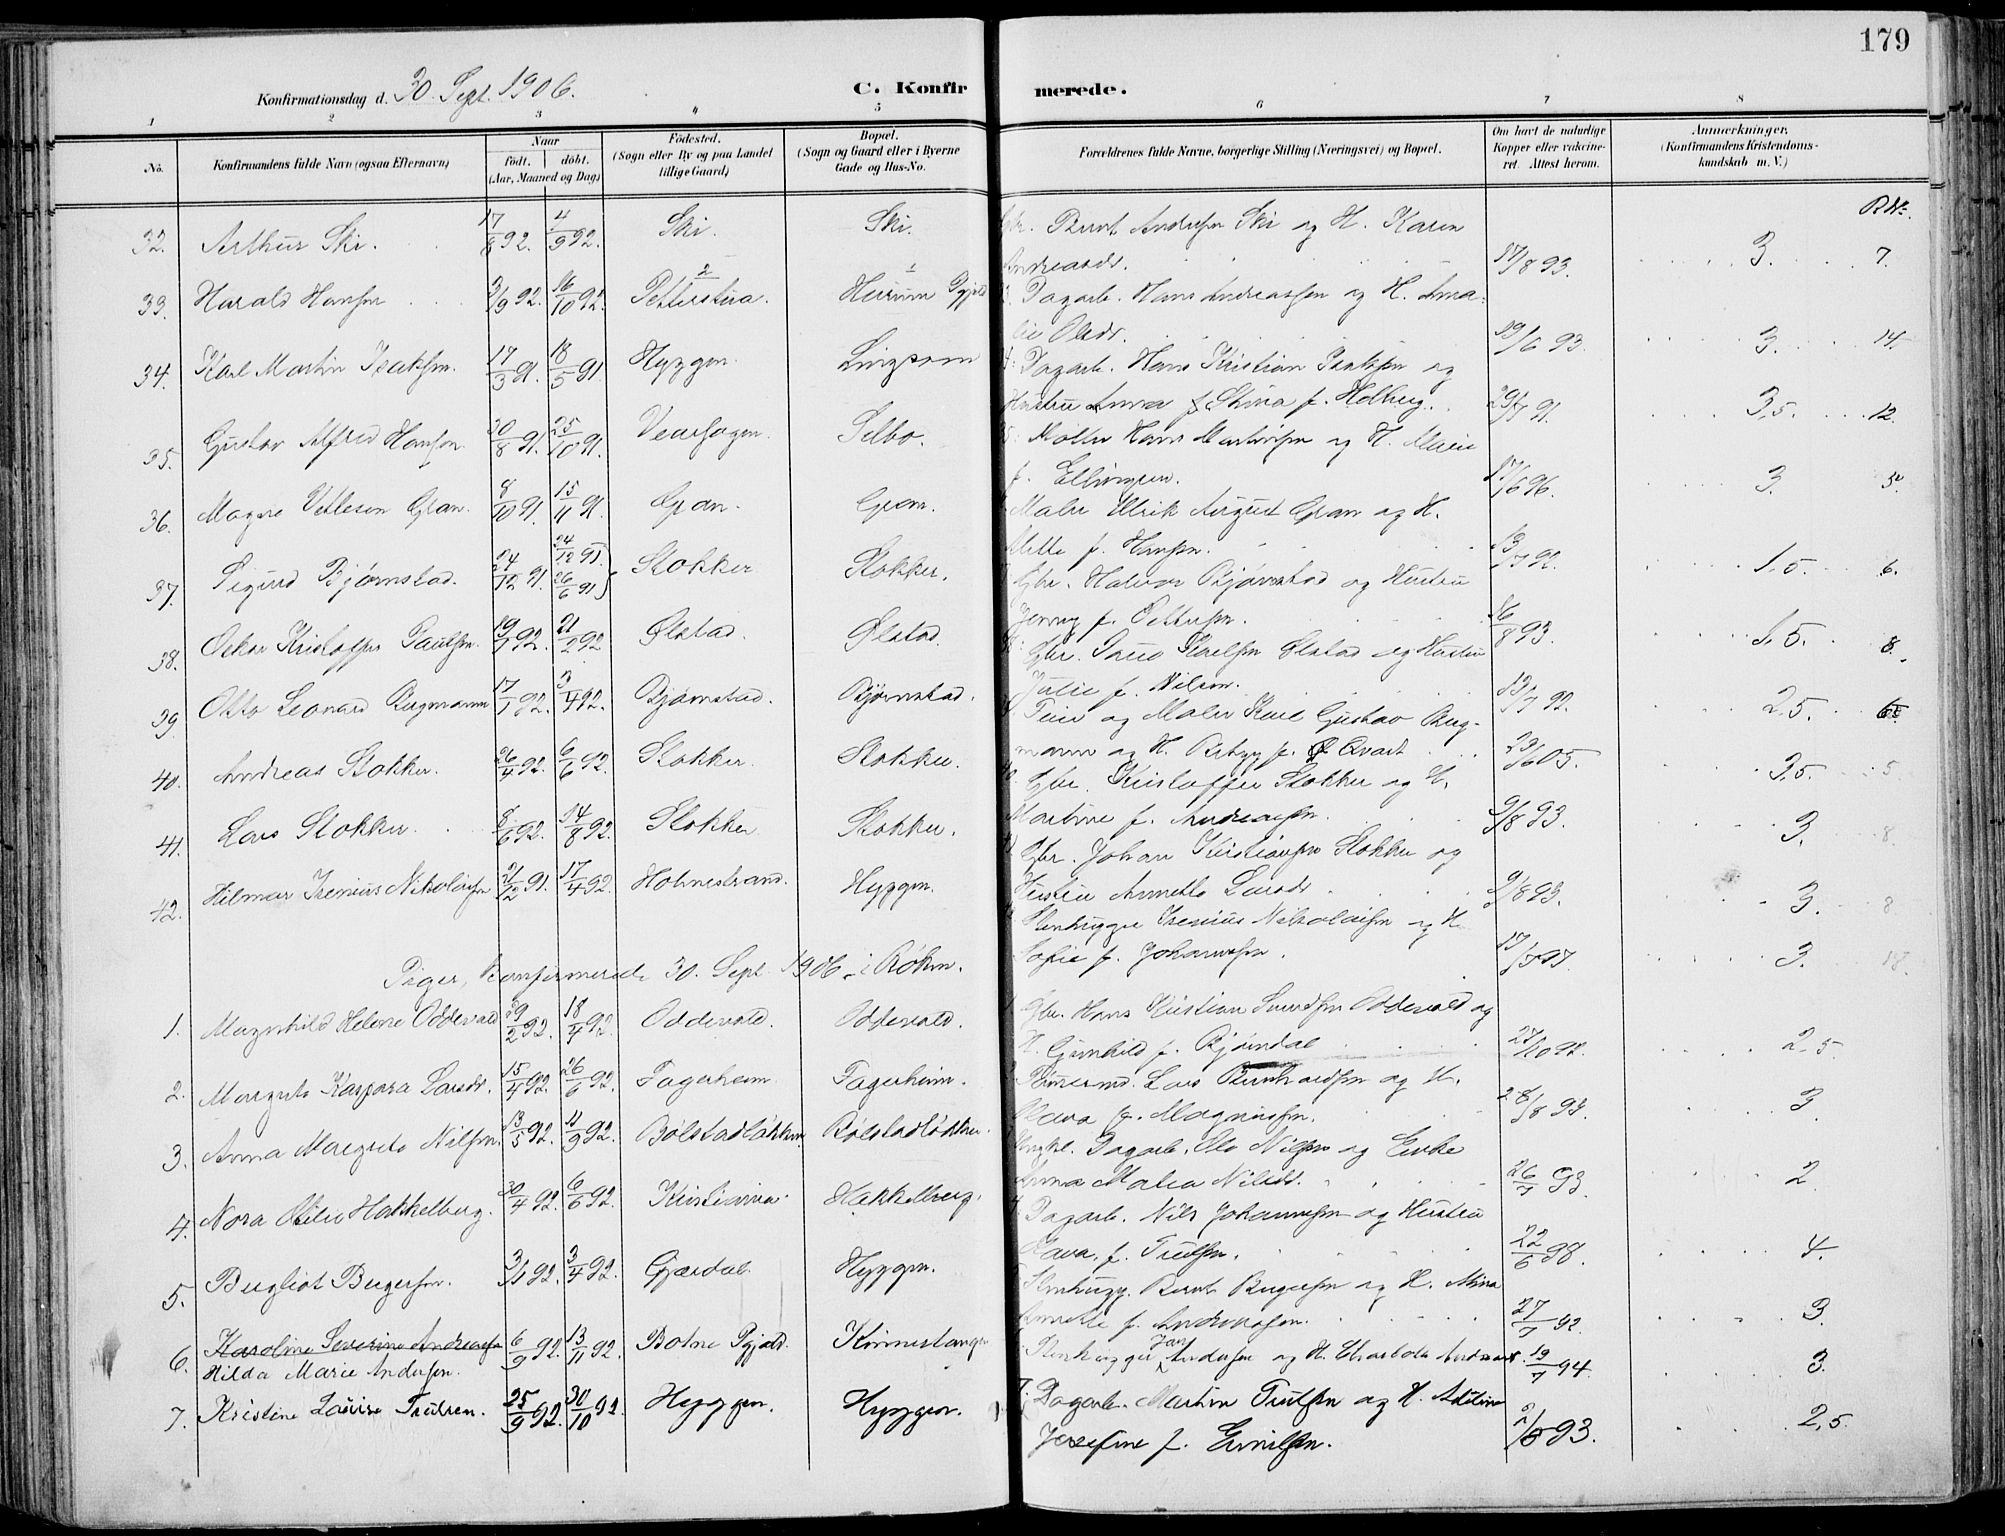 179
Konfirmationsdag d. 30. Sept. 1906.
C. Konfirmerede.
1 2 3 4 5 6 7 8
No.
Konfirmandens fulde Navn (ogsaa Efternavn)
Naar
født. døbt.
(Aar, Maaned og Dag)
Fødested.
(Sogn eller By og paa Landet
tillige Gaard)
Bopæl.
(Sogn og Gaard eller i Byerne
Gade og Hus-No.
Forældrenes fulde Navne, borgerlige Stilling (Næringsvei) og Bopæl.
Om havt de naturlige
Kopper eller vakcine-
ret. Attest herom.
Anmerkninger.
(Konfirmandens Kristendoms-
kundskab m. V.)
32. Arthur Ski. 17/8 92. 4/9 92. Ski. Ski. Gbr. Bernt Andersen Ski og H. Karen
Andreasdr. 17/8 93. 3. 7.
33. Harald Hansen 2/9 92. 16/10 92. Hurum Pgjeld
Dagarb. Hans Andreassen og H. Ama-
lie Olsdr. 3. 14.
34. Karl Martin Isaksen. 17/3 91. 18/5 91. Hyggen. Lingsom
Dagarb. Hans Kristian Isaksen og
Hustru Anna Stina f. Holberg. 3,5. 12.
35. Gustav Alfred Hansen 30/8 91. 25/10 91. Selbo.
Hans Martinsen og H. Marie
f. Ellingsen. 17/6 96. 3. 5.
36. Magne Vetlesen Gran. 8/10 91. 15/11 91. Gran. Gran.
Maler Ulrik August Gran og H.
Mette f. Hansen. 1,5. 6.
37. Sigurd Bjørnstad. 24/12 91. 24/12 91. 26/6 91 Stokker Stokker.
Gbr. Halvor Bjørnstad og Hustru
Jenny f. Pettersen. 16/8 93. 1,5. 8.
38. Oskar Kristoffer Paulsen. 21/2 92 Ølstad. Ølstad.
Gbr. Ølstad og Hustru
Julie f. Nilsen. 2,5.
39. Otto Leonard Bergmann 17/1 92. 3/4 92. Bjørnstad. Bjørnstad.
og Maler Karl Gustav Berg-
mann og H. f. Qvart 23/6 05. 3,5. 5
40. Andreas Stokker. 26/4 92. 6/6 92. Stokker. Stokker.
Gbr. Kristoffer Stokker og H.
Martine f. Andreasen. 9/8 93. 3. 8.
41. Lars Stokker. 8/6 92. 14/8 92. Stokker Stokker.
Gbr. Johan Kristiansen Stokker og
Hustru Annette Larsdr. 9/8 93. 3. 8
42. Hilmar Irenius Nikolaisen 21/12 91. 17/4 92. Holmestrand. Hyggen.
Stenhugger Irenius Nikolaisen og H.
Sofie f. Johannesen. 3. 18.
Piger, Konfirmerede 30. Sept. 1906 i Røken.
1. Magnhild Helene Oddevald 29/2 92. 18/4 92. Oddevald. Oddevald.
Gbr. Hans Kristian Svendsen Oddevald og
H. Gunhild f. Bjørndal 2,5.
2. Margrete Kaspara Larsdr. 15/4 92. 26/6 92. Fagerheim Fagerheim.
Tømmermd. Lars Bernhardsen og H.
f. Magnussen. 28/8 93. 3.
3. Anna Margrete Nilsen. 13/5 92. 11/9 92. Bølstadløkken Bølstadløkken.
Dagarb. Ole Nilsen og Enke
Anna Nilsdr. 26/7 93. 2.
4. Nora Otilie Hakkelberg. 30/4 92. 6/6 92. Kristiania Hakkelberg.
Dagarb. Nils Johannesen og Hustru
f. Trulsen. 22/6 98. 4.
5. Bergliot Bergersen. 3/1 92. 3/4 92. Gjerdal. Hyggen.
Stenhugg. Bernt Bergersen og H. Mina
Annette f. Andreasen. 27/7 92. 3.
6. Karoline Severine Andreasen 6/9 92. 13/11 92. Botne Pgjeld. Kinnestangen
Hilda Marie Andersen.
Stenhugger Andersen og H. Charlotte 19/7 94. 3.
7. Kristine Louise Trulsen. 25/9 92. 30/10 92. Hyggen. Hyggen.
7. Dagarb. Martin Trulsen og H.
Josefine f. 93. 2,5.